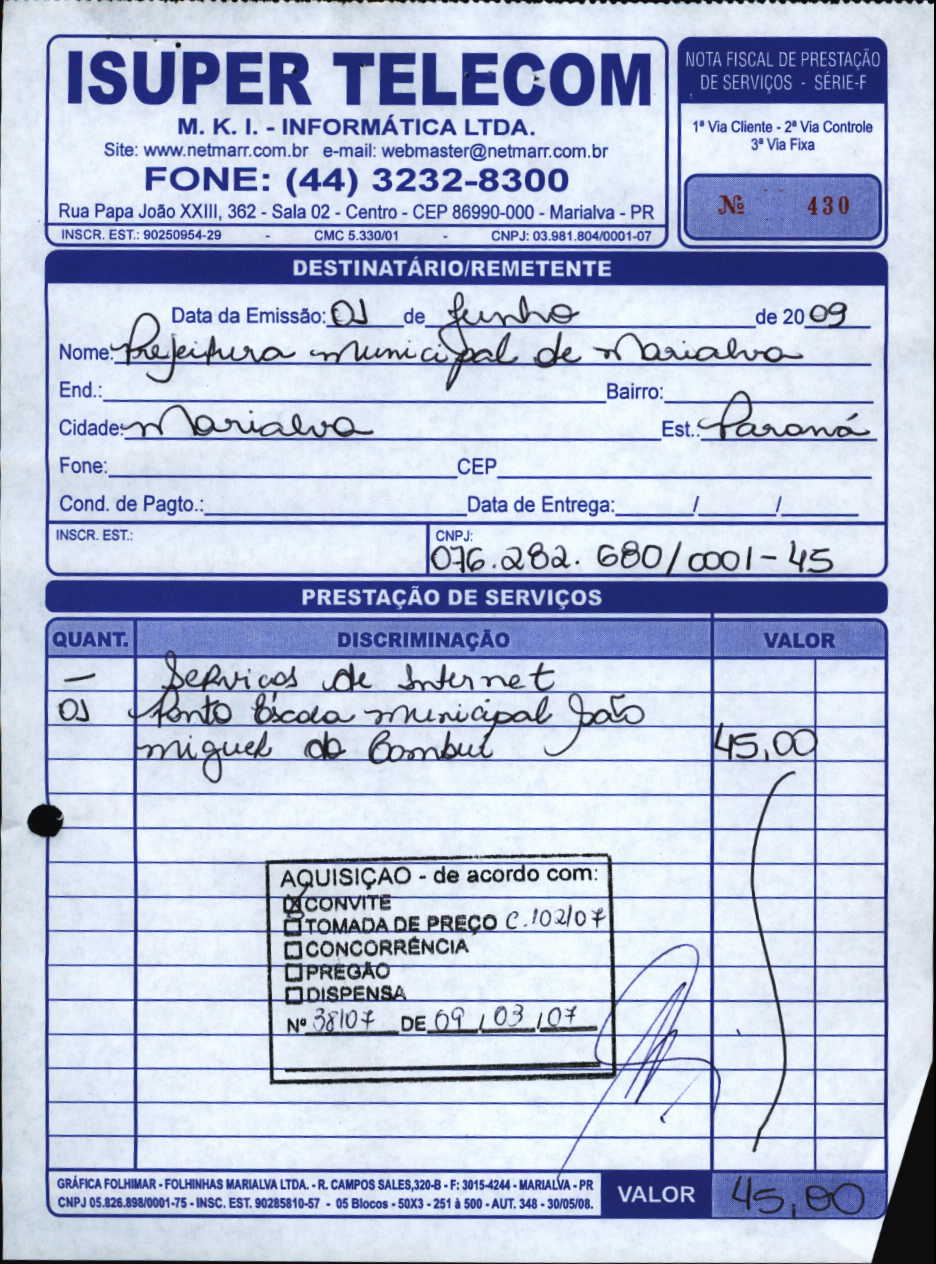 ISUPER TELECOM
M. K. I. - INFORMÁTICA LTDA.
Site: www.netmarr.com.br e-mail: webmaster@netmarr.com.br
FONE: (44) 3232-8300
Rua Papa João XXIII, 362 - Sala 02 - Centro - CEP 86990-000 - Marialva - PR
INSCR. EST.: 90250954-29 - CMC 5.330/01 - CNPJ: 03.981.804/0001-07
NOTA FISCAL DE PRESTAÇÃO
DE SERVIÇOS - SÉRIE-F
1ª Via Cliente - 2ª Via Controle
3ª Via Fixa
Nº 430
DESTINATÁRIO/REMETENTE
Data da Emissão: 01 de Junho de 2009
Nome: Prefeitura municipal de Marialva
End.: Bairro:
Cidade: Marialva Est.: Paraná
Fone: CEP
Cond. de Pagto.: Data de Entrega: / /
INSCR. EST.: CNPJ:
076.282.680/0001-45
PRESTAÇÃO DE SERVIÇOS
QUANT. DISCRIMINAÇÃO VALOR
— Serviços de Internet
01 Ponto Escola municipal João
miguel do Cambuí 45,00
AQUISIÇAO - de acordo com:
CONVITE
TOMADA DE PREÇO C.102/07
CONCORRÊNCIA
PREGÃO
DISPENSA
Nº 38107 DE 09 / 03 / 07
GRÁFICA FOLHIMAR - FOLHINHAS MARIALVA LTDA. - R. CAMPOS SALES,320-B - F: 3015-4244 - MARIALVA - PR
CNPJ 05.826.898/0001-75 - INSC. EST. 90285810-57 - 05 Blocos - 50X3 - 251 à 500 - AUT. 348 - 30/05/08.
VALOR 45,00